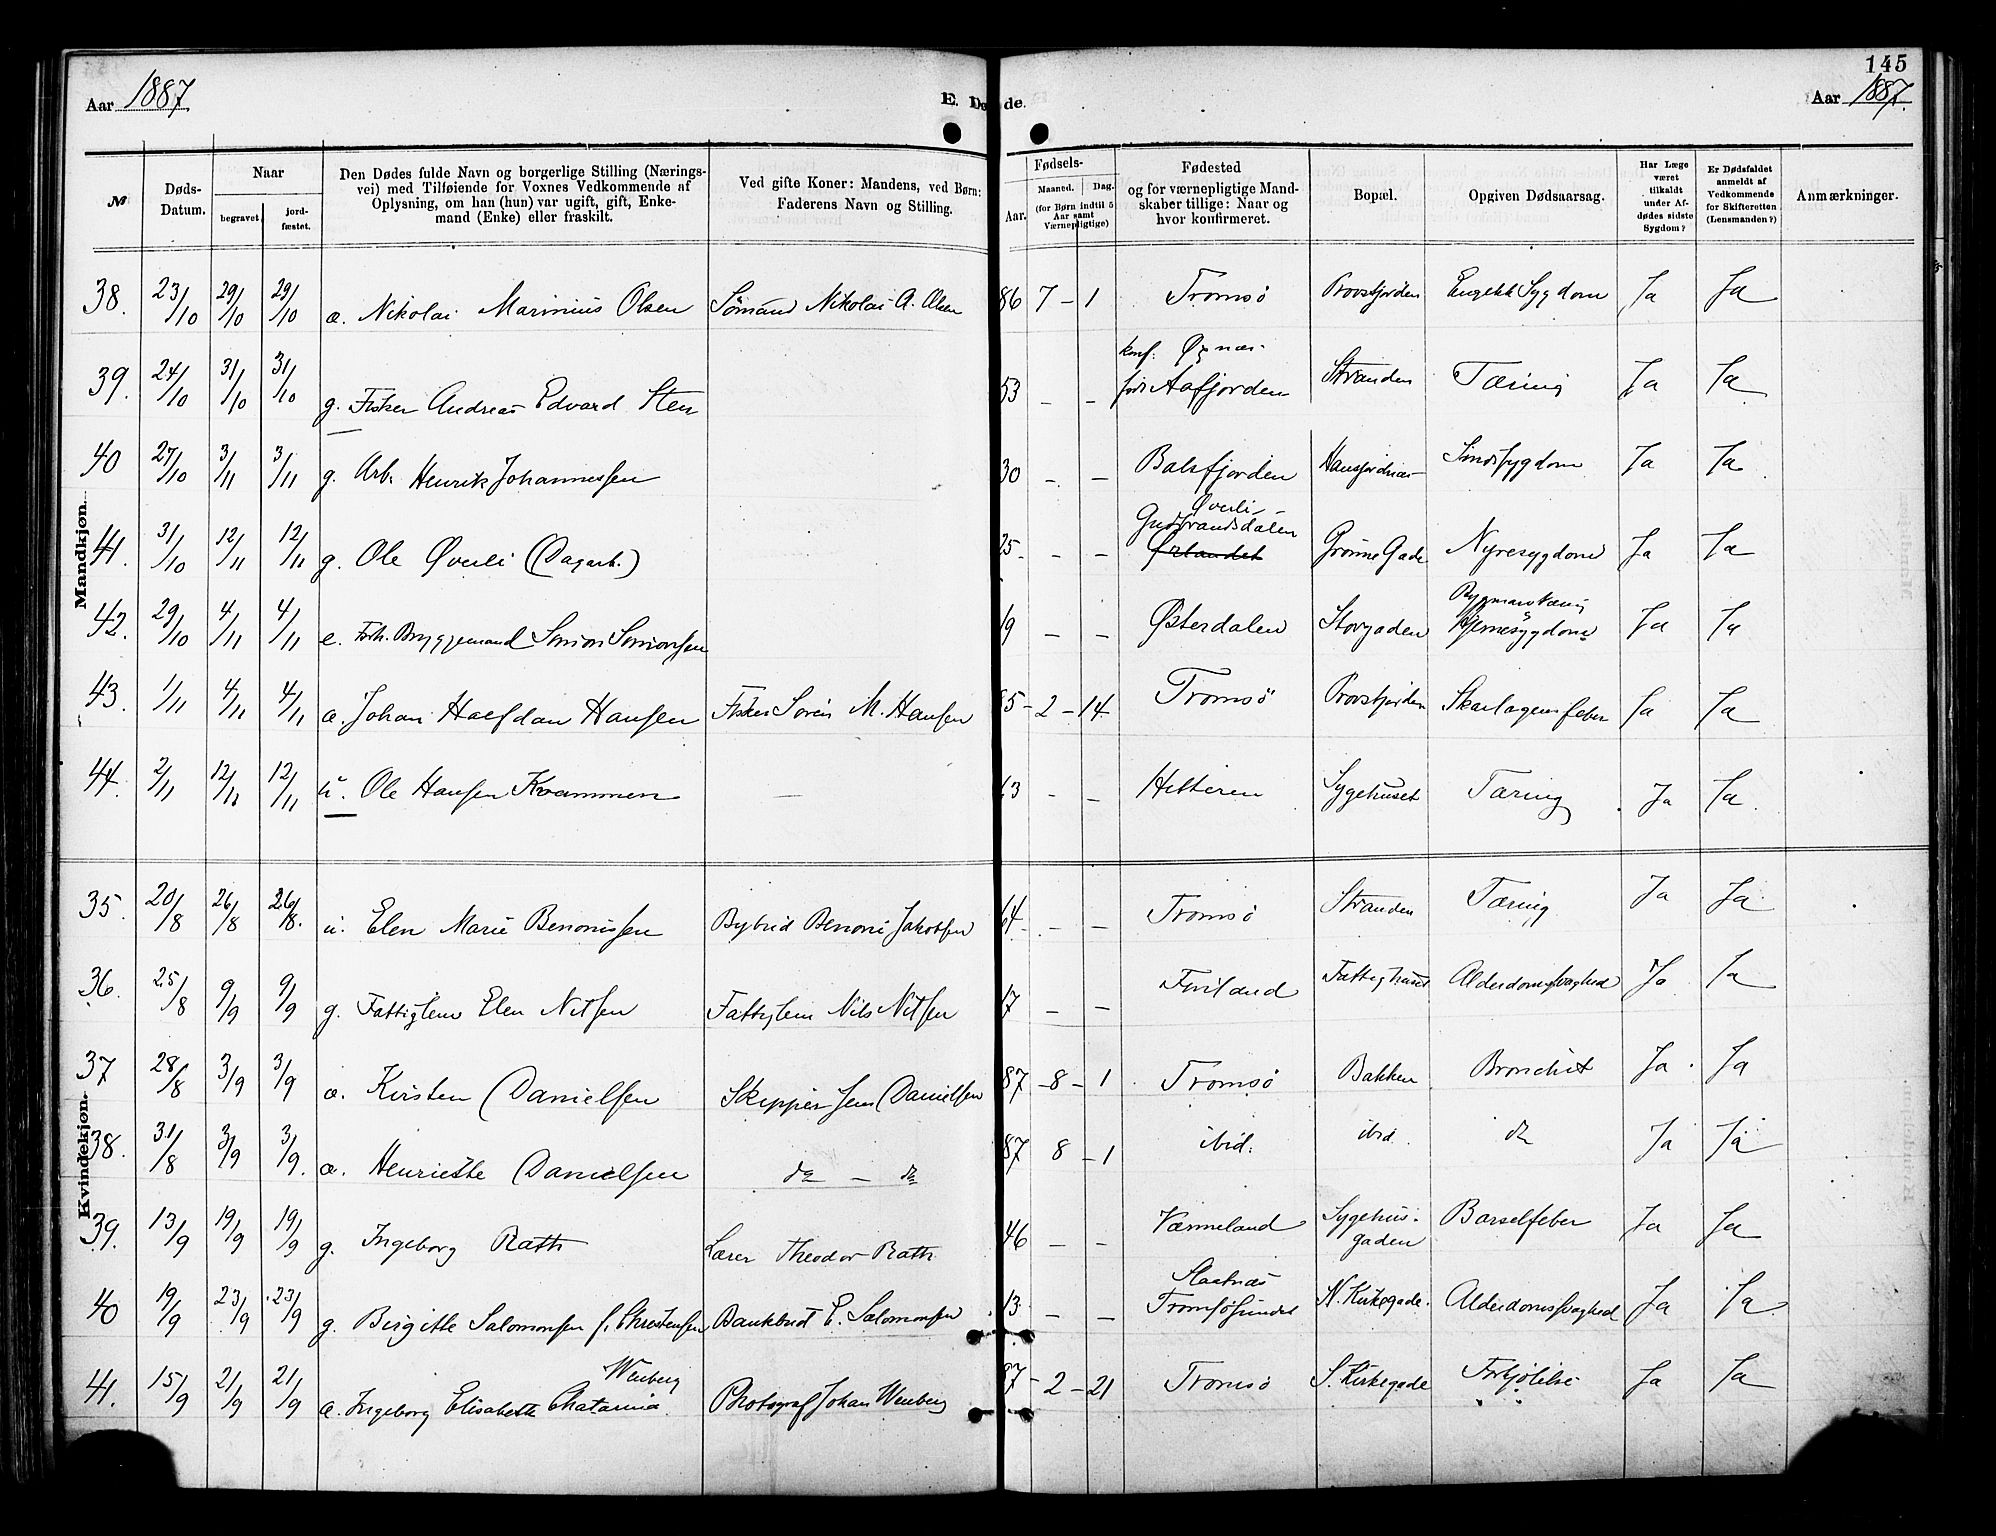 145
Aar 1887. E. Døde. Aar 1887.
№ Døds-Datum. Naar begravet. jord-fæstet. Den Dødes fulde Navn og borgerlige Stilling (Nærings-vei) med Tilføiende for Voxnes Vedkommende af Oplysning, om han (hun) var ugift, gift, Enke-mand (Enke) eller fraskilt. Ved gifte Koner: Mandens, ved Børn: Faderens Navn og Stilling. Fødsels- Aar. Maaned. Dag. (for Børn indtil 5 Aar samt Værnepligtige) Fødested og for værnepligtige Mand-skaber tillige: Naar og hvor konfirmeret. Bopæl. Opgiven Dødsaarsag. Har Læge været tilkaldt under Af-dødes sidste Sygdom? Er Dødsfaldet anmeldt af Vedkommende for Skifteretten (Lensmanden?) Anmærkninger.
Mandkjøn.
38. 23/10 29/10 29/10 a. Nikolai Marinius Olsen Sømand Nikolai A. Olsen 86 7 - 1 Tromsø Provstjorden Engelsk Sygdom Ja Ja
39. 24/10 31/10 31/10 g. Fisker Andreas Edvard Sten 53 - - konf. Øxnæs Aafjorden Stranden Tæring Ja Ja
40 27/10 3/11 3/11 g. Arb. Henrik Johannessen 30 - - Balsfjorden Sindssygdom Ja Ja
41. 31/10 12/11 12/11 g. Ole Øverli (Dagarb.) 25 - - Øverli Gudbrandsdalen Ørlandet Grønne Gade Nyresygdom Ja Ja
42. 29/10 4/11 4/11 e. Forh. Bryggemand Simon Simonsen 19 - - Østerdalen Storgaden Hjernesygdom Ja Ja
43. 1/11 4/11 4/11 a. Johan Halfdan Hansen Fisker Søren M. Hansen 85 - 2 - 14 Tromsø Provstjorden Skarlagensfeber Ja Ja
44. 2/11 12/11 12/11 u. Ole Hansen Kvammen — 63 - - Hitteren Sygehuset Tæring Ja Ja.
Kvindekjøn.
35. 20/8 26/8 26/8. u. Elen Marie Benonissen Bybud Benoni Jakobsen 64 - - Tromsø Stranden Tæring Ja Ja
36. 25/8 9/9 9/9 g. Fattiglem Elen Nilsen Fattiglem Nils Nilsen 17 - - Finland Fattighuset Alderdomssvaghed Ja Ja
37 28/8 3/9 3/9 a. Kirsten Danielsen Skipper Jens Danielsen 87 - 8 - 1 Tromsø Bakken Bronchit Ja Ja
38. 31/8 3/9 3/9. a. Henriette Danielsen do — do 87 8 - 1 ibid. ibid. do Ja Ja
39. 13/9 19/9 19/9 g. Ingeborg Rath Lærer Theodor Rath 46 - - Værmeland Sygehus-gaden Barselfeber Ja Ja
40 19/9 23/9 23/9 g. Birgitte Salomonsen f. Christensen Bankbud E. Salomonsen 13 - - Slaatnæs Tromsøsundet N. Kirkegade. Alderdomssvaghed Ja Ja
41. 15/9 21/9 21/9 a. Ingeborg Elisabeth Chatarina Wenberg Photograf Johan Wenberg 87 - 2 - 21 Tromsø S. Kirkegade Forkjølelse Ja Ja